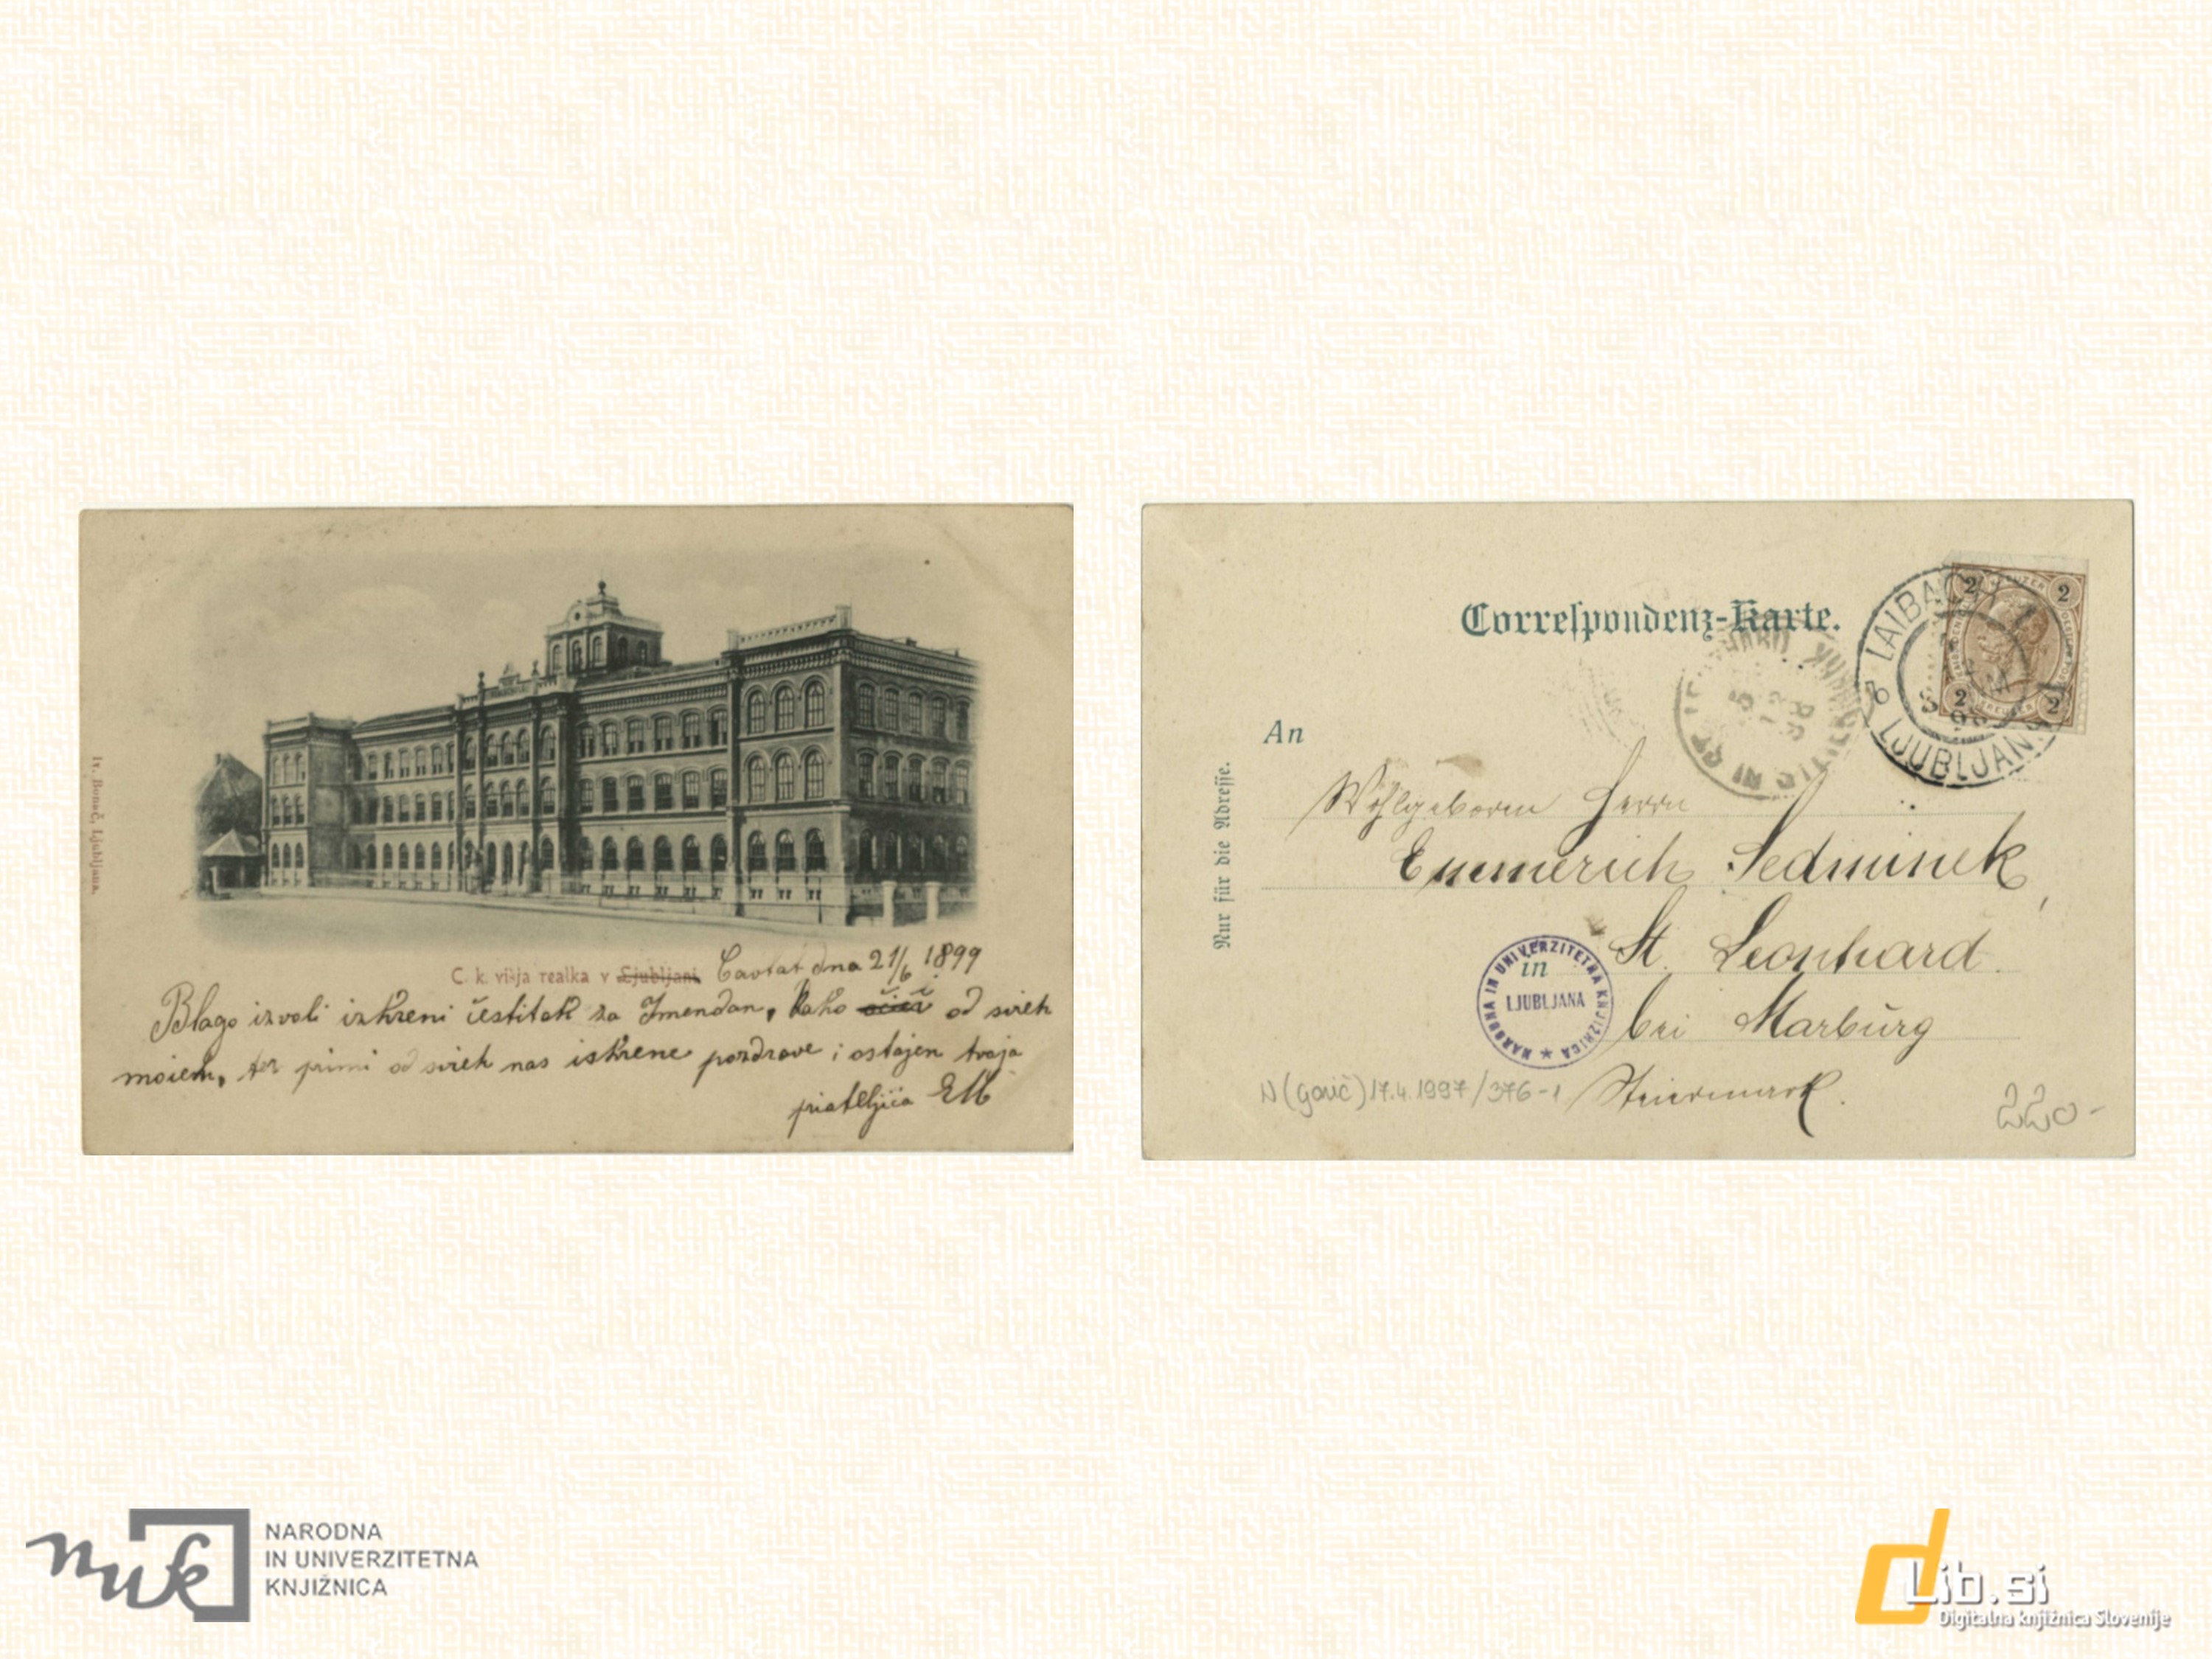 Iv. Bonač, Ljubljana.
C. k. višja realka v Ljubljani Cavtat dna 21/6 1899
Blago izvoli izkreni čestitak za Imendan, kako i od svieh
moieh, ter primi od svieh nas iskrene pozdrave i ostajem tvoja
priateljica EM
Correspondenz-Karte.
LAIBACH
LJUBLJANA
2 KREUZER 2
2 KREUZER 2
An
Nur für die Adresse.
Wohlgeborm Herrn
Emmerich Sedminek,
in St. Leonhard
NARODNA IN UNIVERZITETNA KNJIŽNICA
LJUBLJANA
bei Marburg
N (Gorič) 17.4.1997/376-1 Steiermark.
220-
nuk
NARODNA
IN UNIVERZITETNA
KNJIŽNICA
dLib.si
Digitalna knjižnica Slovenije